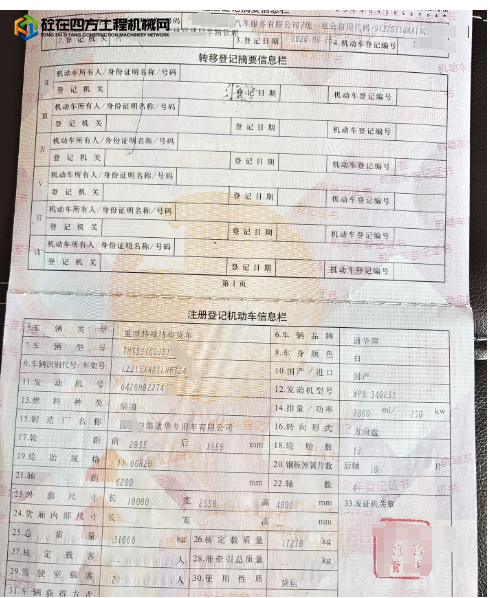 砼在四方工程机械网
汽车服务有限公司/统一社会信用代码/
2.登记机关 3.登记日期 2020-09-2 4.机动车登记编号
转移登记摘要信息栏
II 机动车所有人/身份证明名称/号码
登记机关 登记日期 机动车登记编号
III 机动车所有人/身份证明名称/号码
登记机关 登记日期 机动车登记编号
IV 机动车所有人/身份证明名称/号码
登记机关 登记日期 机动车登记编号
V 机动车所有人/身份证明名称/号码
登记机关 登记日期 机动车登记编号
VI 机动车所有人/身份证明名称/号码
登记机关 登记日期 机动车登记编号
VII 机动车所有人/身份证明名称/号码
登记机关 登记日期 机动车登记编号
第1页
注册登记机动车信息栏
5.车辆类型 重型特殊结构货车 6.车辆品牌 通华牌
7.车辆型号 8.车身颜色 白
9.车辆识别代号/车架号 10.国产/进口 国产
11.发动机号 6420H02274 12.发动机型号
13.燃料种类 柴油 14.排量/功率 ml/ 250 kw
15.制造厂名称 中集通华专用车有限公司 16.转向形式 方向盘
17.轮距 前 2035 后 1850 mm 18.轮胎数 12
19.轮胎规格 11.00R20 20.钢板弹簧片数 后轴 10 片
21.轴距 6200 mm 22.轴数
23.外廓尺寸 长 10000 宽 2550 高 4000 mm 33.发证机关章
24.货厢内部尺寸 长 宽 高 mm
25.总质量 31000 kg 26.核定载质量 17270 kg
27.核定载客 人 28.准牵引总质量 kg
29.驾驶室载客 2 人 30.使用性质 货运
31.车辆获得方式